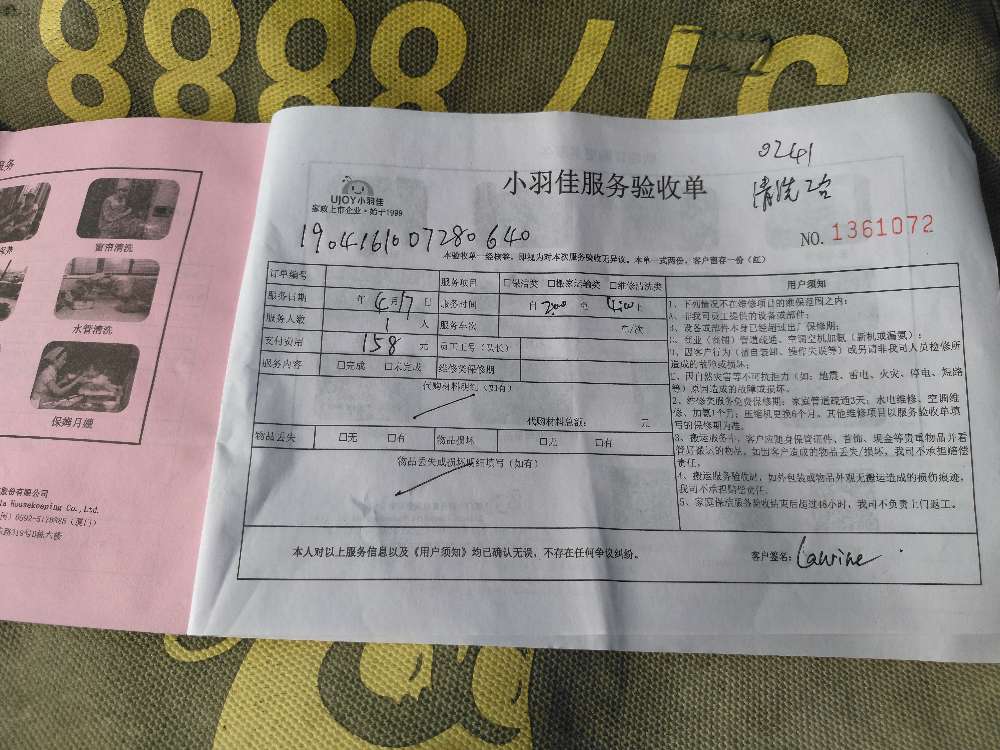 8888
服务
窗帘清洗
水管清洗
保姆月嫂
股份有限公司
0241
清洗2台
UJOY小羽佳
家政上市企业·始于1999
小羽佳服务验收单
NO. 1361072
1904161007280640
本验收单一经核签，即视为对本次服务验收无异议。本单一式两份，客户留存一份（红）
订单编号 服务项目 □保洁类 □搬家运输类 □维修清洗类
服务日期 年 4月17日 服务时间 自 2:00 至 4:00
服务人数 1 人 服务车次 车/次
支付费用 158 元 员工工号（队长）
服务内容 □完成 □未完成 维修类保修期
代购材料明细（如有）
代购材料总额： 元
物品丢失 □无 □有 物品损坏 □无 □有
物品丢失或损坏明细填写（如有）
用户须知
1、下列情况不在维修项目的维保范围之内：
A、非我司员工提供的设备或部件；
B、设备或部件本身已经超过出厂保修期；
造成的故障或损坏。
E、因自然灾害等不可抗拒力（如：地震、雷电、火灾、停电、短路
等）原因造成的故障或损坏。
2、维修类服务免费保修期：家庭管道疏通3天、水电维修、空调维
修、加氨1个月；压缩机更换6个月。其他维修项目以服务验收单填
写的保修期为准。
3、搬运服务中，客户应随身保管证件、首饰、现金等贵重物品并看
管好搬运的物品，如因客户造成的物品丢失/损坏，我司不承担赔偿
责任。
4、搬运服务验收时，如外包装或物品外观无搬运造成的损伤痕迹，
我司不承担赔偿责任。
5、家庭保洁服务验收结束后超过48小时，我司不负责上门返工。
本人对以上服务信息以及《用户须知》均已确认无误，不存在任何争议纠纷。
客户签名：Lawrine